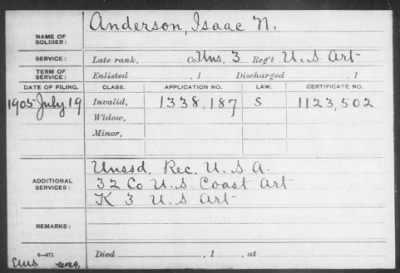 NAME OF SOLDIER: Anderson, Isaac N.
SERVICE: Late rank, Co Uns. 3 Reg't U.S Art
TERM OF SERVICE: Enlisted , 1 Discharged , 1
DATE OF FILING. CLASS. APPLICATION NO. LAW. CERTIFICATE NO.
1905 July 19 Invalid, 1338,187 S 1123,502
Widow,
Minor,
ADDITIONAL SERVICES: Unssd. Rec. U.S.A.
32 Co U.S Coast Art
K 3 U.S Art
REMARKS:
Died , 1 , at